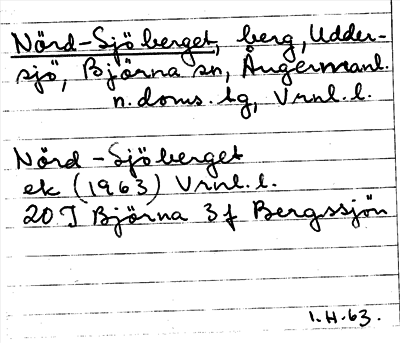 Nörd-Sjöberget, berg, Udder-
sjö, Björna sn, Ångermanl.
n. doms. tg, Vrnl. l.
Nörd-Sjöberget
ek (1963) Vrnl. l.
20 J Björna 3 f Bergssjön
1. H. 63.